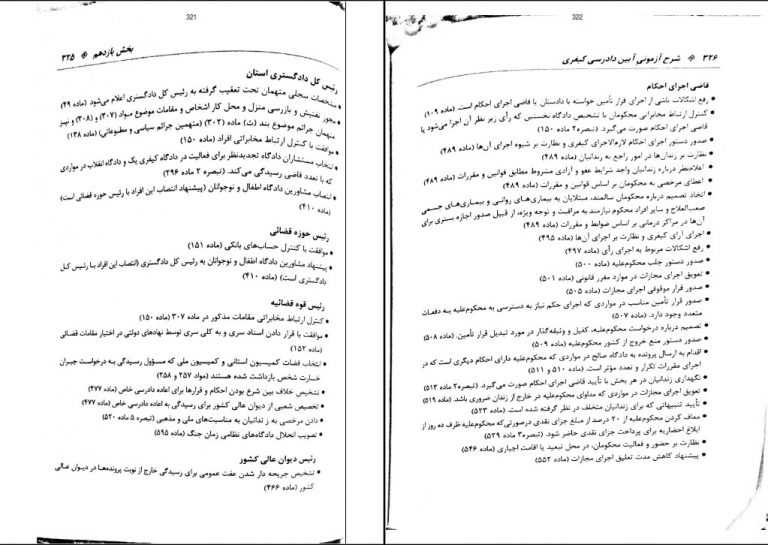 321
بخش یازدهم ※ ۳۲۵
رئیس کل دادگستری استان
• مشخصات سجلی متهمان تحت تعقیب گرفته به رئیس کل دادگستری اعلام می‌شود (ماده ۴۹)
• مجوز تفتیش و بازرسی منزل و محل کار اشخاص و مقامات موضوع مواد (۳۰۷) و (۳۰۸) و نیز
متهمان جرائم موضوع بند (ث) ماده (۳۰۲) (متهمین جرائم سیاسی و مطبوعاتی) (ماده ۱۳۸)
• موافقت با کنترل ارتباط مخابراتی افراد (ماده ۱۵۰)
• انتخاب مستشاران دادگاه تجدیدنظر برای فعالیت در دادگاه کیفری یک و دادگاه انقلاب در مواردی
که با تعدد قاضی رسیدگی می‌کند. (تبصره ۲ ماده ۲۹۶)
• انتصاب مشاورین دادگاه اطفال و نوجوانان (پیشنهاد انتصاب این افراد با رئیس حوزه قضائی است)
(ماده ۴۱۰)
رئیس حوزه قضائی
• موافقت با کنترل حساب‌های بانکی (ماده ۱۵۱)
• پیشنهاد مشاورین دادگاه اطفال و نوجوانان به رئیس کل دادگستری (انتصاب این افراد با رئیس کل
دادگستری است) (ماده ۴۱۰)
رئیس قوه قضائیه
• کنترل ارتباط مخابراتی مقامات مذکور در ماده ۳۰۷ (ماده ۱۵۰)
• موافقت با قرار دادن اسناد سری و به کلی سری توسط نهادهای دولتی در اختیار مقامات قضائی
(ماده ۱۵۲)
• انتخاب قضات کمیسیون استانی و کمیسیون ملی که مسؤول رسیدگی به درخواست جبران
خسارت شخص بازداشت شده هستند (مواد ۲۵۷ و ۲۵۸)
• تشخیص خلاف بین شرع بودن احکام و قرارها برای اعاده دادرسی خاص (ماده ۴۷۷)
• تخصیص شعبی از دیوان عالی کشور برای رسیدگی به اعاده دادرسی خاص (ماده ۴۷۷)
• دادن مرخصی به زندانیان به مناسبت‌های ملی و مذهبی (تبصره ۵ ماده ۵۲۰)
• تصویب انحلال دادگاه‌های نظامی زمان جنگ (ماده ۵۹۵)
رئیس دیوان عالی کشور
• تشخیص جریحه دار شدن عفت عمومی برای رسیدگی خارج از نوبت پرونده‌ها در دیوان عالی
کشور (ماده ۴۶۶)
322
۳۲۶ ※ شرح آزمونی آیین دادرسی کیفری
قاضی اجرای احکام
• رفع اشکالات ناشی از اجرای قرار تأمین خواسته با دادستان یا قاضی اجرای احکام است. (ماده ۱۰۹)
• کنترل ارتباط مخابراتی محکومان با تشخیص دادگاه نخستین که رأی زیر نظر آن اجرا می‌شود یا
قاضی اجرای احکام صورت می‌گیرد. (تبصره۲ ماده ۱۵۰)
• صدور دستور اجرای احکام لازم‌الاجرای کیفری و نظارت بر شیوه اجرای آن‌ها (ماده ۴۸۹)
• نظارت بر زندان‌ها در امور راجع به زندانیان (ماده ۴۸۹)
• اعلام‌نظر درباره زندانیان واجد شرایط عفو و آزادی مشروط مطابق قوانین و مقررات (ماده ۴۸۹)
• اعطای مرخصی به محکومان بر اساس قوانین و مقررات (ماده ۴۸۹)
• اتخاذ تصمیم درباره محکومان سالمند، مبتلایان به بیماری‌های روانی و بیماری‌های جسمی
صعب‌العلاج و سایر افراد محکوم نیازمند به مراقبت و توجه ویژه، از قبیل صدور اجازه بستری برای
آن‌ها در مراکز درمانی بر اساس ضوابط و مقررات (ماده ۴۸۹)
• اجرای آرای کیفری و نظارت بر اجرای آن‌ها (ماده ۴۹۵)
• رفع اشکالات مربوط به اجرای رأی (ماده ۴۹۷)
• صدور دستور جلب محکوم‌علیه (ماده ۵۰۰)
• تعویق اجرای مجازات در موارد مقرر قانونی (ماده ۵۰۱)
• صدور قرار موقوفی اجرای مجازات (ماده ۵۰۵)
• صدور قرار تأمین مناسب در مواردی که اجرای حکم نیاز به دسترسی به محکوم‌علیه به دفعات
متعدد وجود دارد. (ماده ۵۰۷)
• تصمیم درباره درخواست محکوم‌علیه، کفیل و وثیقه‌گذار در مورد تبدیل قرار تأمین. (ماده ۵۰۸)
• صدور دستور منع خروج از کشور محکوم‌علیه (ماده ۵۰۹)
• اقدام به ارسال پرونده به دادگاه صالح در مواردی که محکوم‌علیه دارای احکام دیگری است که در
اجرای مقررات تکرار و تعدد مؤثر است. (ماده ۵۱۰ و ۵۱۱)
• نگهداری زندانیان در هر بخش با تأیید قاضی اجرای احکام صورت می‌گیرد. (تبصره۲ ماده ۵۱۳)
• تعویق اجرای مجازات در مواردی که مداوای محکوم‌علیه در خارج از زندان ضروری باشد. (ماده ۵۱۹)
• تأیید تنبیهاتی که برای زندانیان متخلف در نظر گرفته شده است. (ماده ۵۲۳)
• معاف کردن محکوم‌علیه از ۲۰ درصد از مبلغ جزای نقدی درصورتی‌که محکوم‌علیه ظرف ده روز از
ابلاغ احضاریه برای پرداخت جزای نقدی حاضر شود. (تبصره۳ ماده ۵۲۹)
• نظارت بر حضور و فعالیت محکومان، در محل تبعید یا اقامت اجباری (ماده ۵۴۶)
• پیشنهاد کاهش مدت تعلیق اجرای مجازات (ماده ۵۵۲)